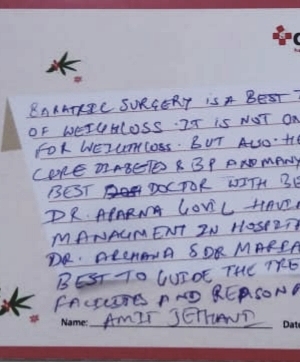 BARATRIC SURGERY IS A BEST
OF WEIGHLOSS. IT IS NOT ON
FOR WEIGHTLOSS. BUT ALSO. HE
CURE DIABETES & BP AND MANY
BEST DOCTOR WITH BE
DR. APARNA GOVIL HAVI
MANAGMENT IN HOSPITA
DR. ARCHANA & DR MARRA
BEST TO GUIDE THE TRE
FACILITES AND REASONA
Name: AMIT JETHANI Date